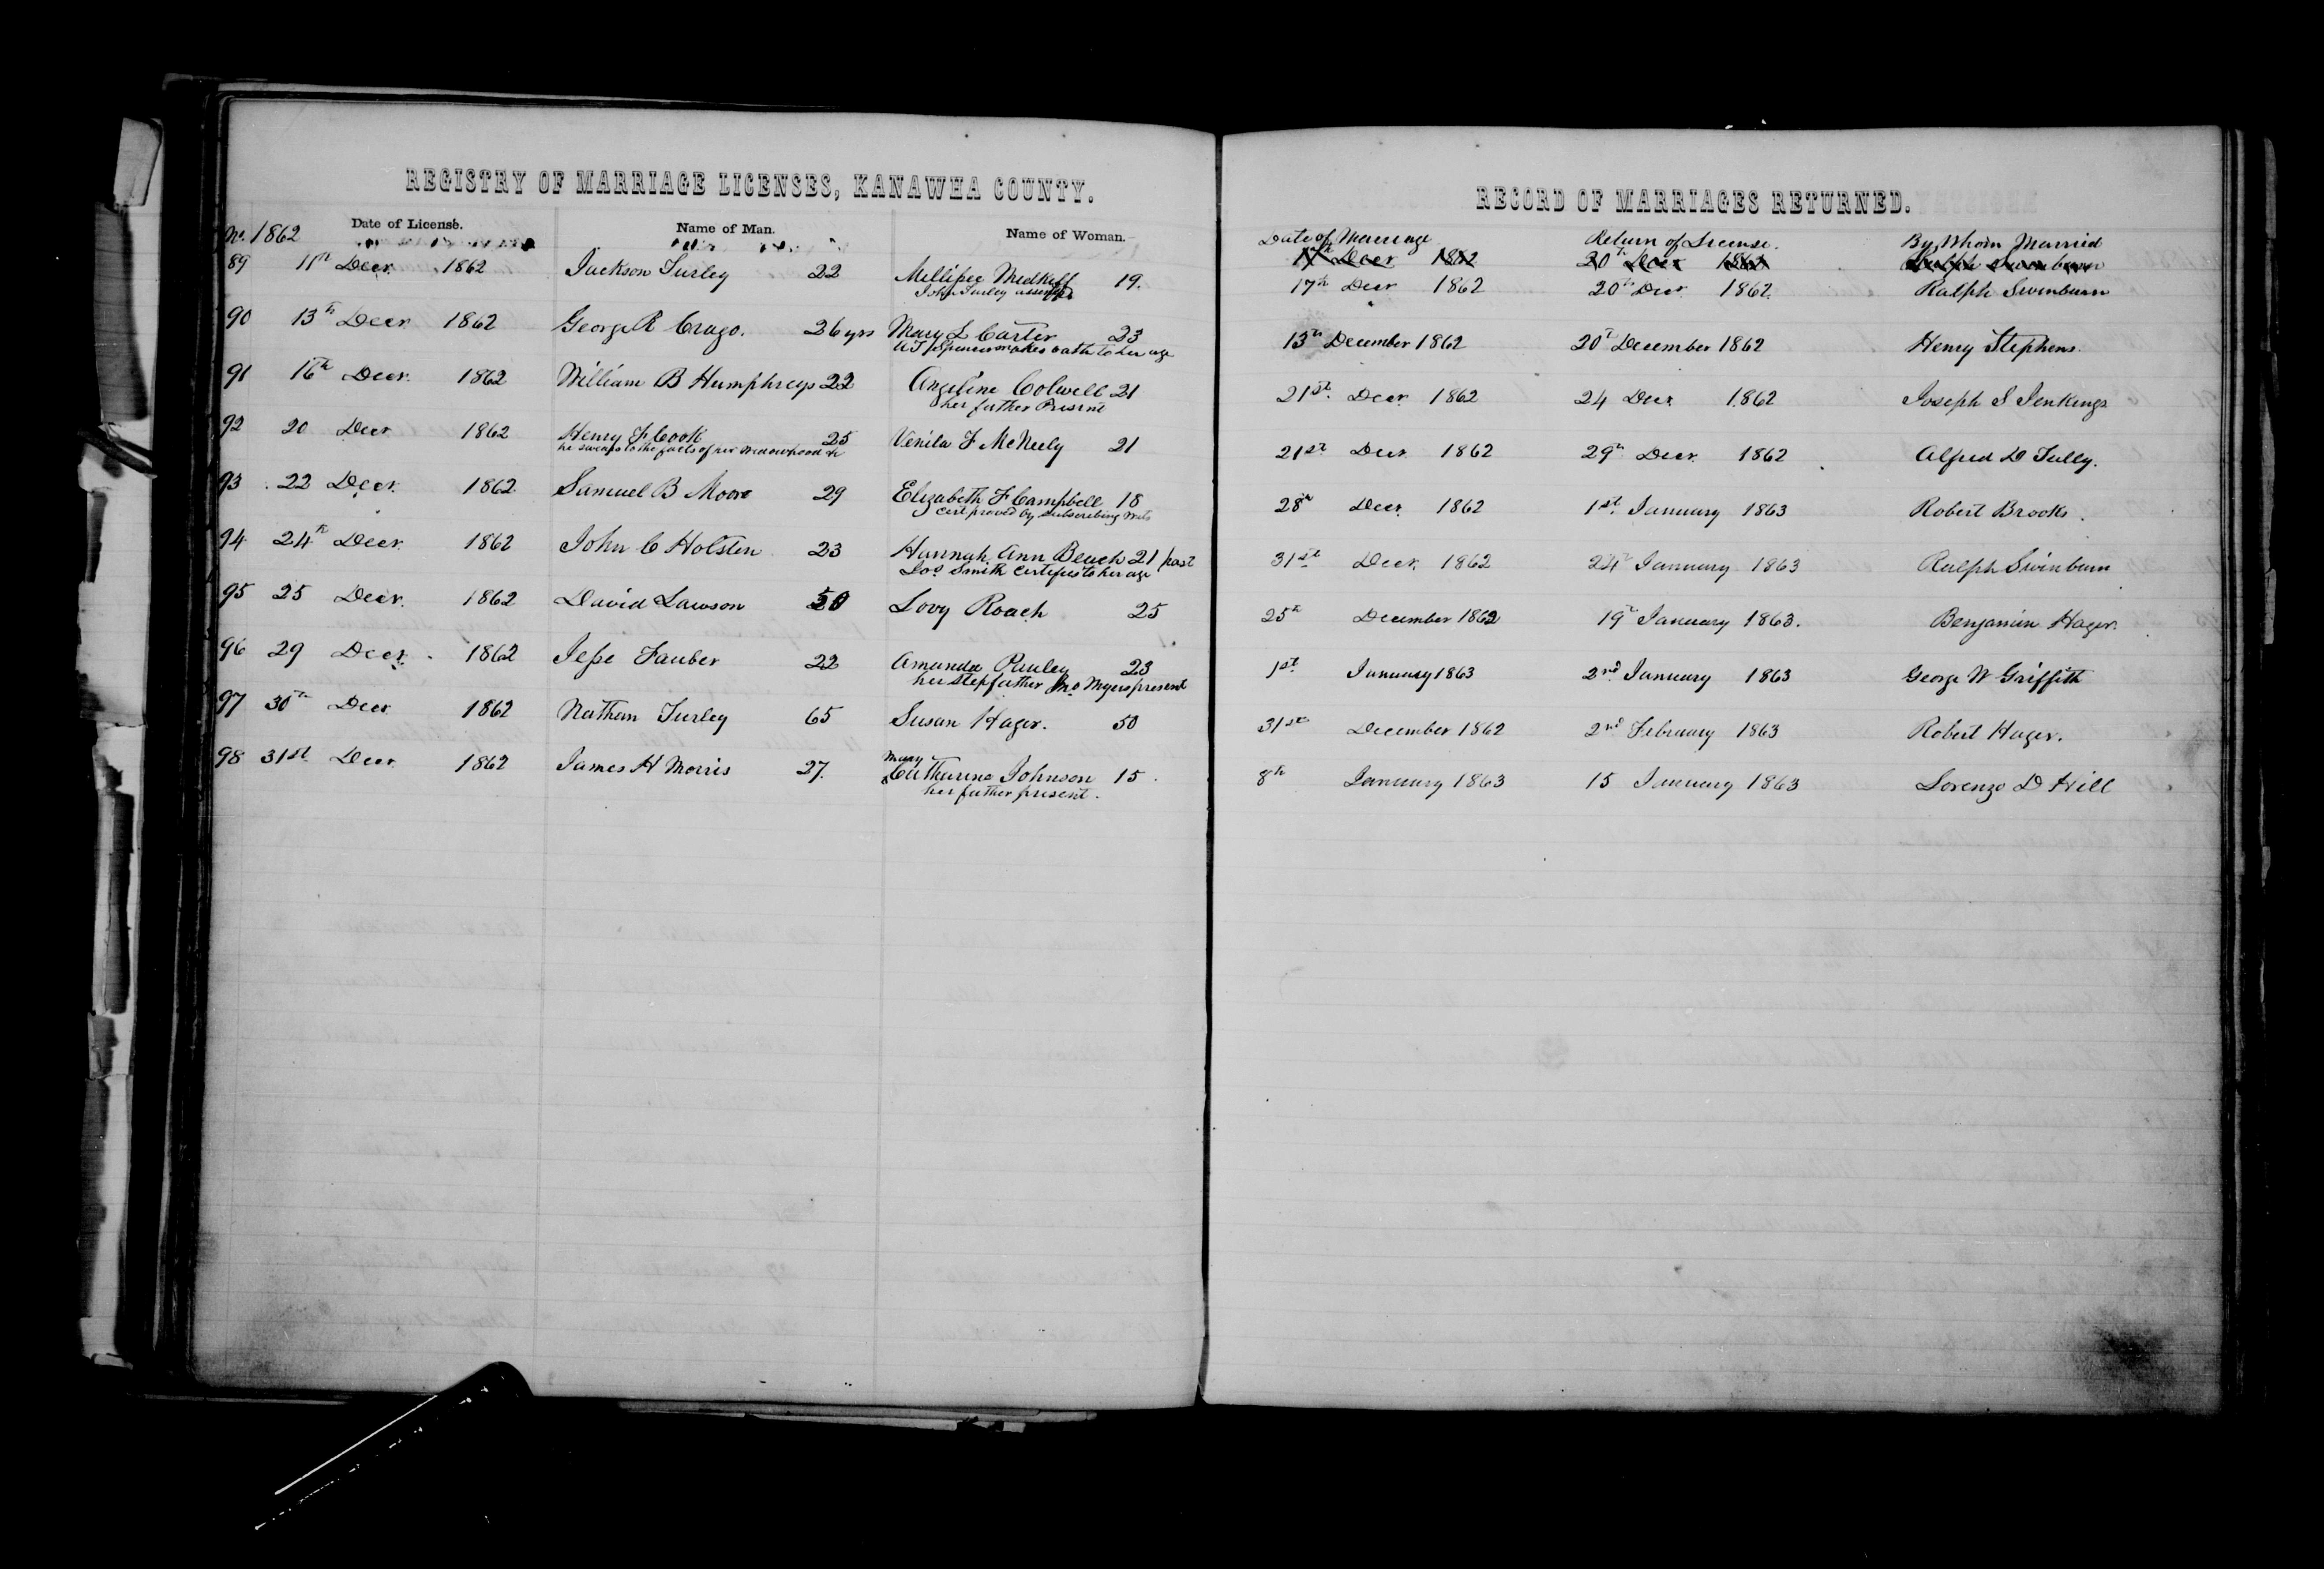 REGISTRY OF MARRIAGE LICENSES, KANAWHA COUNTY.
No. 1862 Date of License. Name of Man. Name of Woman.
89 11th Decr. 1862 Jackson Turley 22 Millipee Medkiff 19.
John Turley assents
90 13th Decr 1862 George R Crago. 26 yrs Mary L Carter 23
A J Spencer makes oath to her age
91 16th Decr. 1862 William B Humphreys 22 Angeline Colwell 21
her father Present
92 20 Decr 1862 Henry F Cook 25 Venila F McNeely 21
he swears to the facts of her widowhood &c
93 22 Decr. 1862 Samuel B Moore 29 Elizabeth F Campbell 18
Cert proved by subscribing Wits
94 24th Decr. 1862 John C Holsten 23 Hannah Ann Beach 21 past
Jos Smith Certifies to her age
95 25 Decr. 1862 David Lawson 50 Lovy Roach 25
96 29 Decr. 1862 Jesse Fauber 22 Amanda Pauley 23
her stepfather Jno Myers present
97 30th Decr 1862 Nathan Turley 65 Susan Hager. 50
98 31st Decr 1862 James H Morris 27. Mary Catharine Johnson 15.
her father present.
RECORD OF MARRIAGES RETURNED.
Date of Marriage Return of License. By Whom Married
17th Decr 1862 20th Decr 1862 Ralph Swinburn
17th Decr 1862 20th Decr 1862. Ralph Swinburn
13th December 1862 20th December 1862 Henry Stephens.
21st. Decr 1862 24 Decr 1862 Joseph S Jenkings
21st Decr 1862 29th Decr. 1862 Alfred D Tully.
28th Decr. 1862 1st. January 1863 Robert Brooks.
31st Decr. 1862 24th January 1863 Ralph Swinburn
25th December 1862 19th January 1863. Benjamin Hager.
1st January 1863 2nd January 1863 George W Griffith
31st December 1862 2nd February 1863 Robert Hager.
8th January 1863 15 January 1863 Lorenzo D Hill